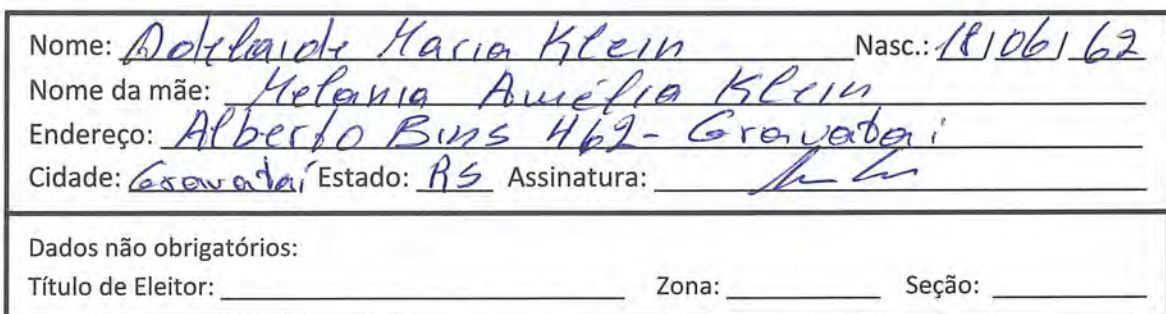 Nome: Adelaide Maria Klein Nasc.: 18/06/62
Nome da mãe: Melania Amélia Klein
Endereço: Alberto Bins 462 - Gravataí
Cidade: Gravataí Estado: RS Assinatura:
Dados não obrigatórios:
Título de Eleitor: Zona: Seção: